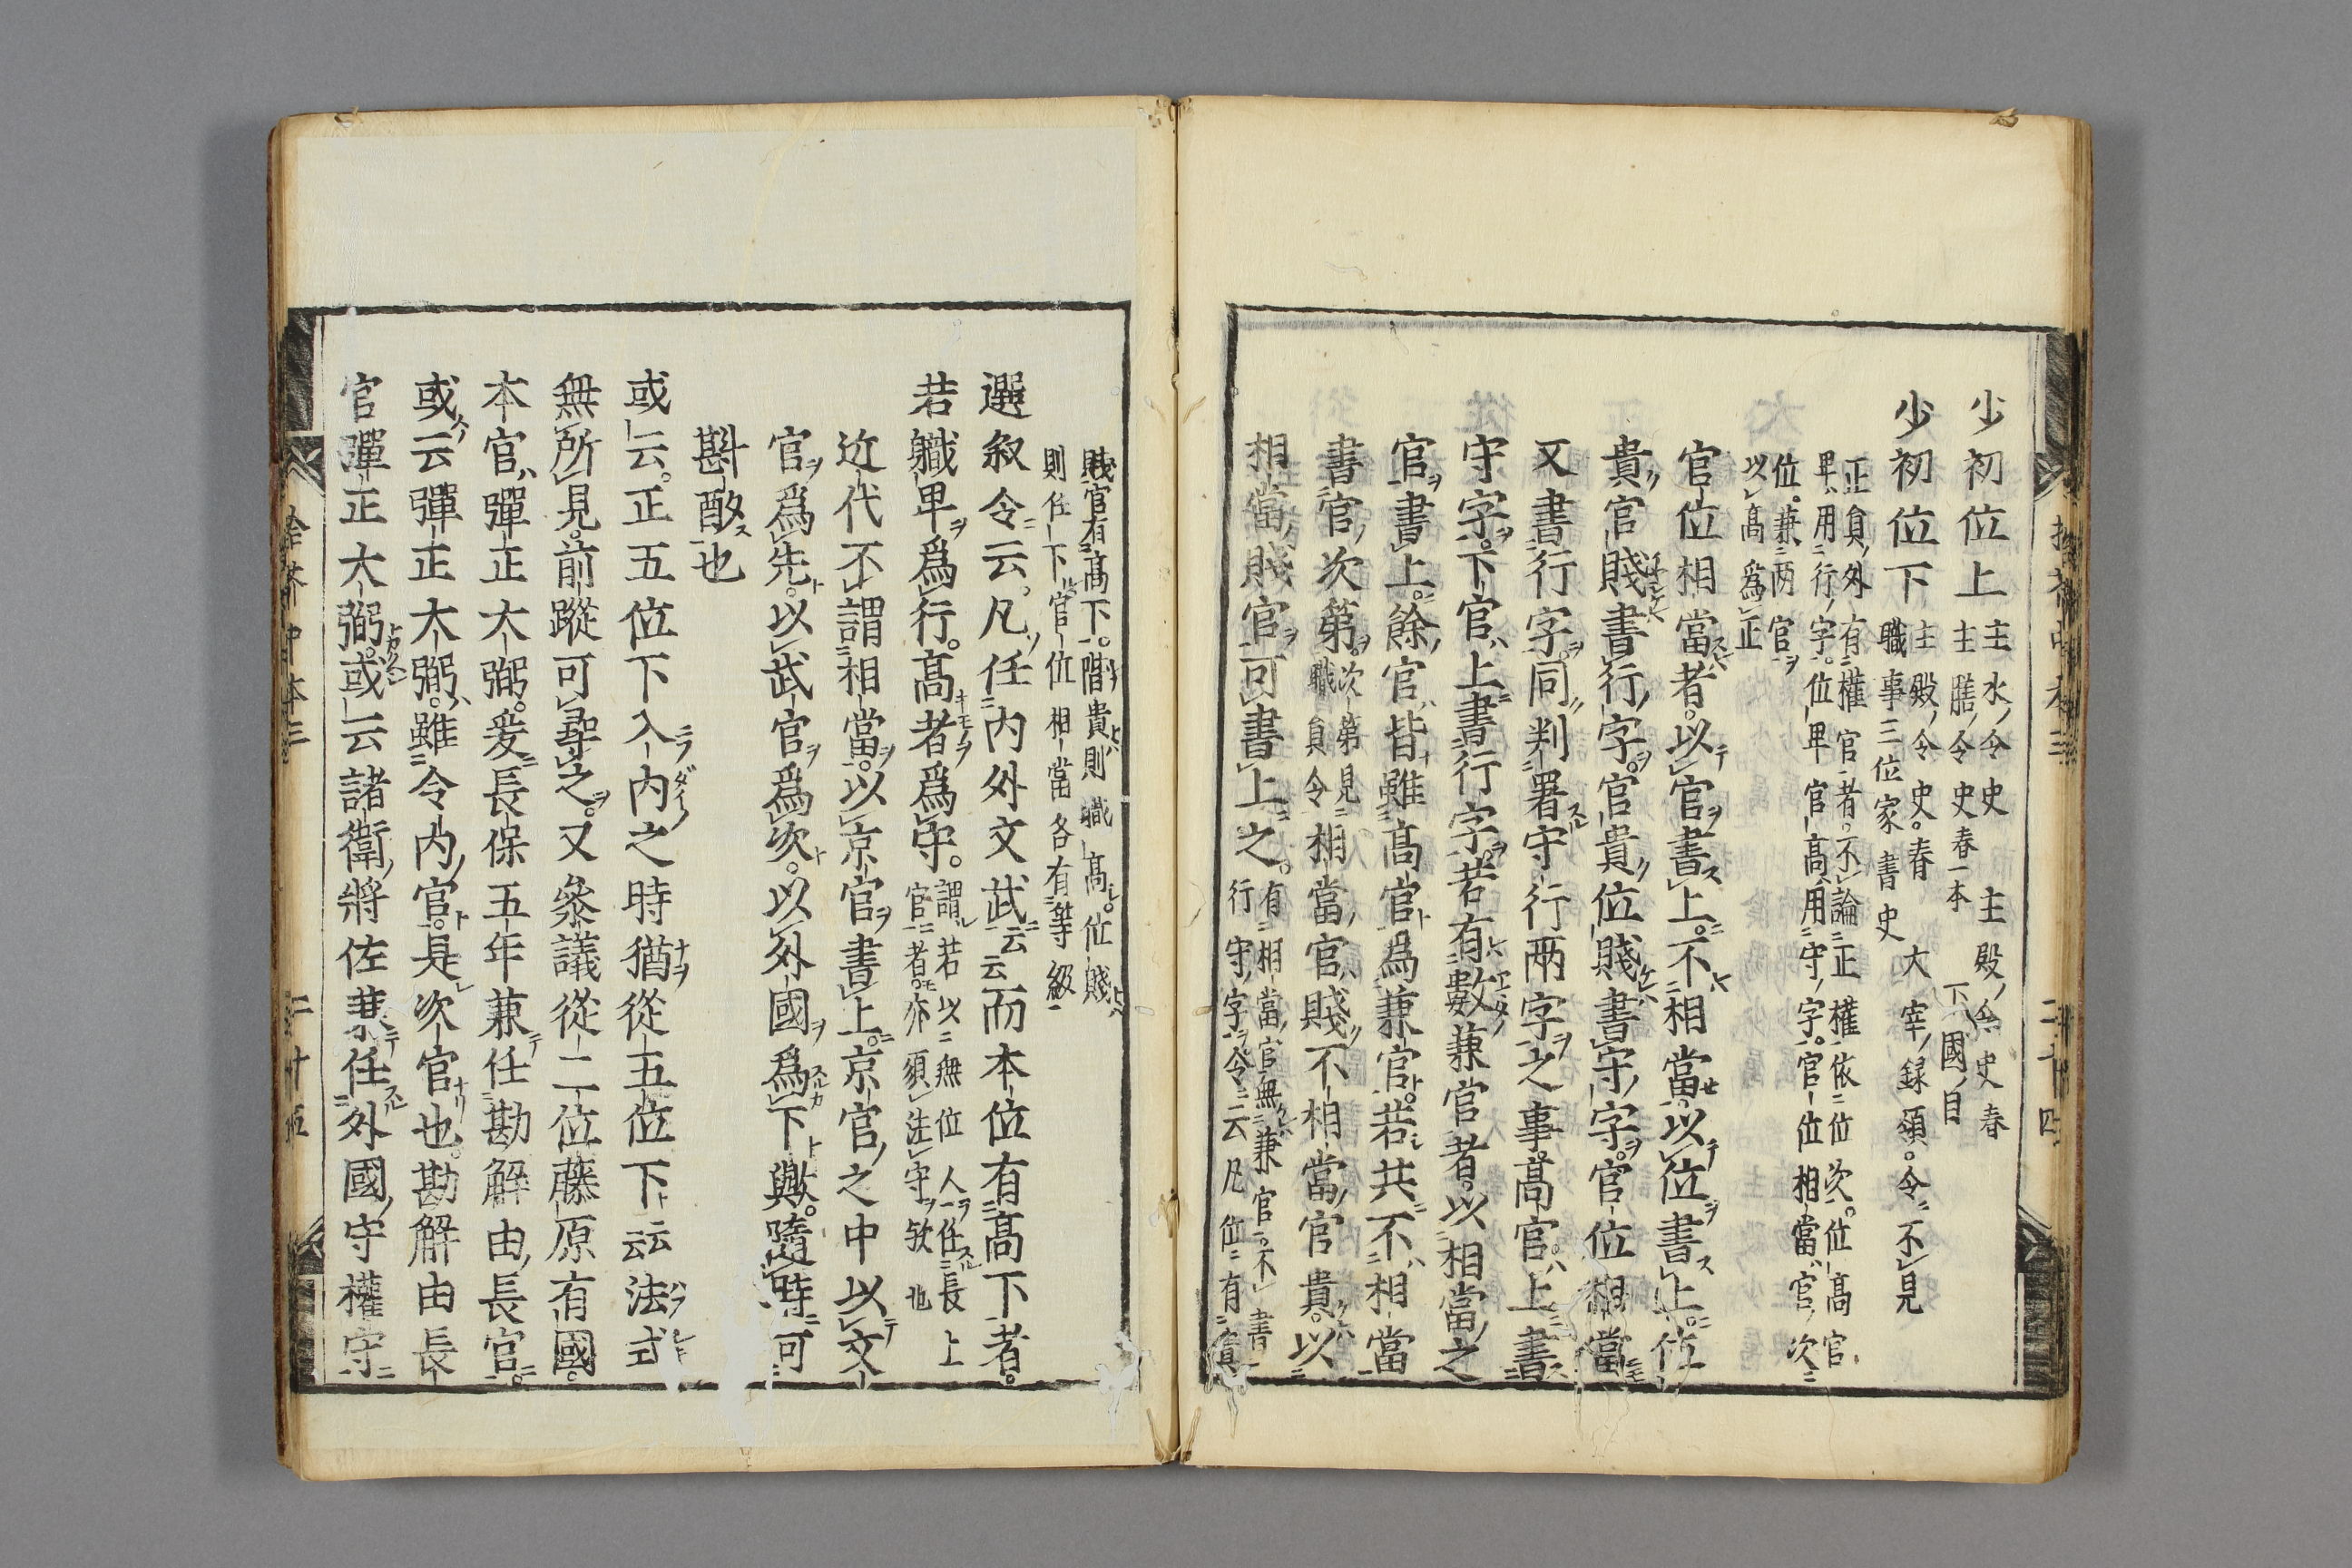 少初位上 主水令史 主殿令史春
主膳令史 春一本 下國目
少初位下 主殿令史春 大宰録領令不見
職事三位家書史
正員外有權官者不論正權依位次位高官
卑用行字位卑官高用守字官位相當官次
位兼兩官
以高爲正
官位相當者以官書上不相當以位書上位
貴官賤書行字官貴位賤書守字官位相當
又書行字同判署守行兩字之事高官上書
守字下官上書行字若有數兼官者以相當之
官書上餘官皆雖高官爲兼官若共不相當
書官次第次第見職員令相當官賤不相當官貴以
相當賤官可書上之有相當官無兼官不書
行守字令云凡位有貴
賤官有高下階貴則職高位賤
則任下官位相當各有等級
選叙令云凡任内外文武云云而本位有高下者
若職卑爲行高者爲守謂若以無位人任長上
官者亦須注守歟也
近代不謂相當以京官書上京官之中以文
官爲先以武官爲次以外國爲下歟隨時可
斟酌也
或云正五位下入内之時猶從五位下云云法式
無所見前蹤可尋之又參議從二位藤原有國
本官彈正大弼爰長保五年兼任勘解由長官
或云彈正大弼雖令内官是次官也勘解由長
官彈正大弼或云諸衛將佐兼任外國守權守